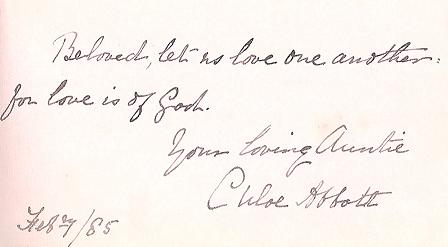 Beloved, let us love one another:
for love is of God.
Your loving Auntie
Chloe Abbott
Feb 7/85